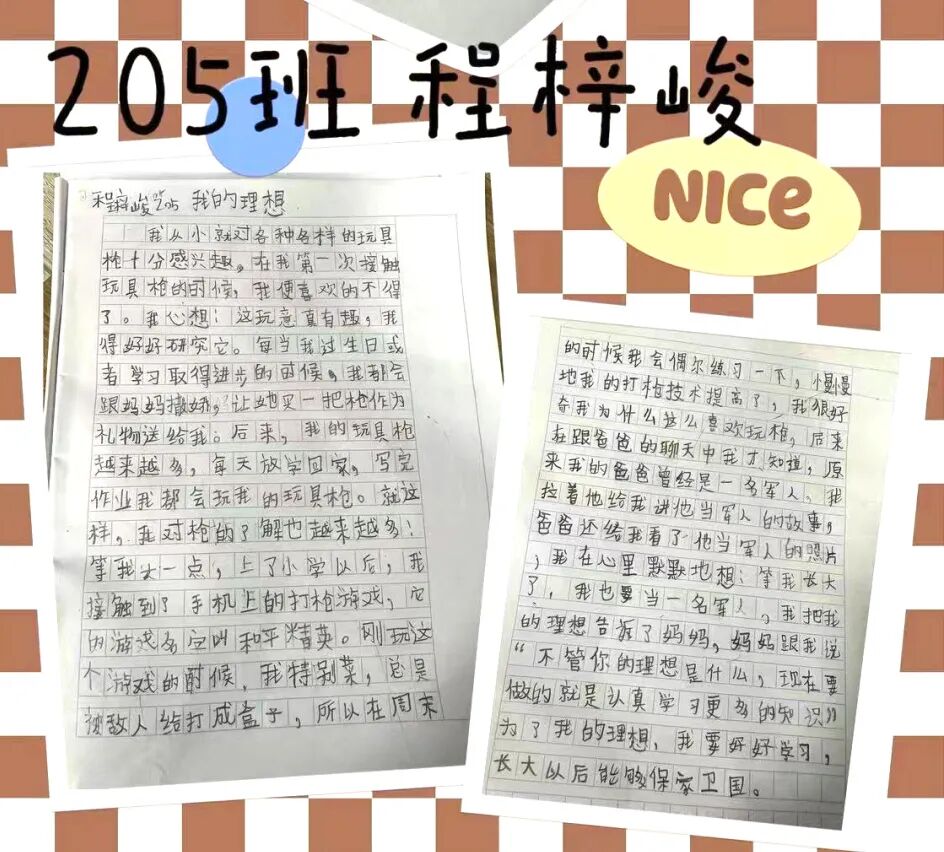 205班 程梓峻
NICe
程梓峻205 我的理想
我从小就对各种各样的玩具
枪十分感兴趣。在我第一次接触
玩具枪的时候，我便喜欢的不得
了。我心想：这玩意真有趣，我
得好好研究它。每当我过生日或
者学习取得进步的时候，我都会
跟妈妈撒娇，让她买一把枪作为
礼物送给我。后来，我的玩具枪
越来越多，每天放学回家，写完
作业我都会玩我的玩具枪。就这
样，我对枪的了解也越来越多！
等我大一点，上了小学以后，我
接触到了手机上的打枪游戏，它
的游戏名字叫和平精英。刚玩这
个游戏的时候，我特别菜，总是
被敌人给打成盒子，所以在周末
的时候我会偶尔练习一下，慢慢
地我的打枪技术提高了，我很好
奇我为什么这么喜欢玩枪，后来
在跟爸爸的聊天中我才知道，原
来我的爸爸曾经是一名军人。我
拉着他给我讲他当军人的故事，
爸爸还给我看了他当军人的照片
，我在心里默默地想：等我长大
了，我也要当一名军人。我把我
的理想告诉了妈妈，妈妈跟我说
“不管你的理想是什么，现在要
做的就是认真学习更多的知识”
为了我的理想，我要好好学习，
长大以后能够保家卫国。